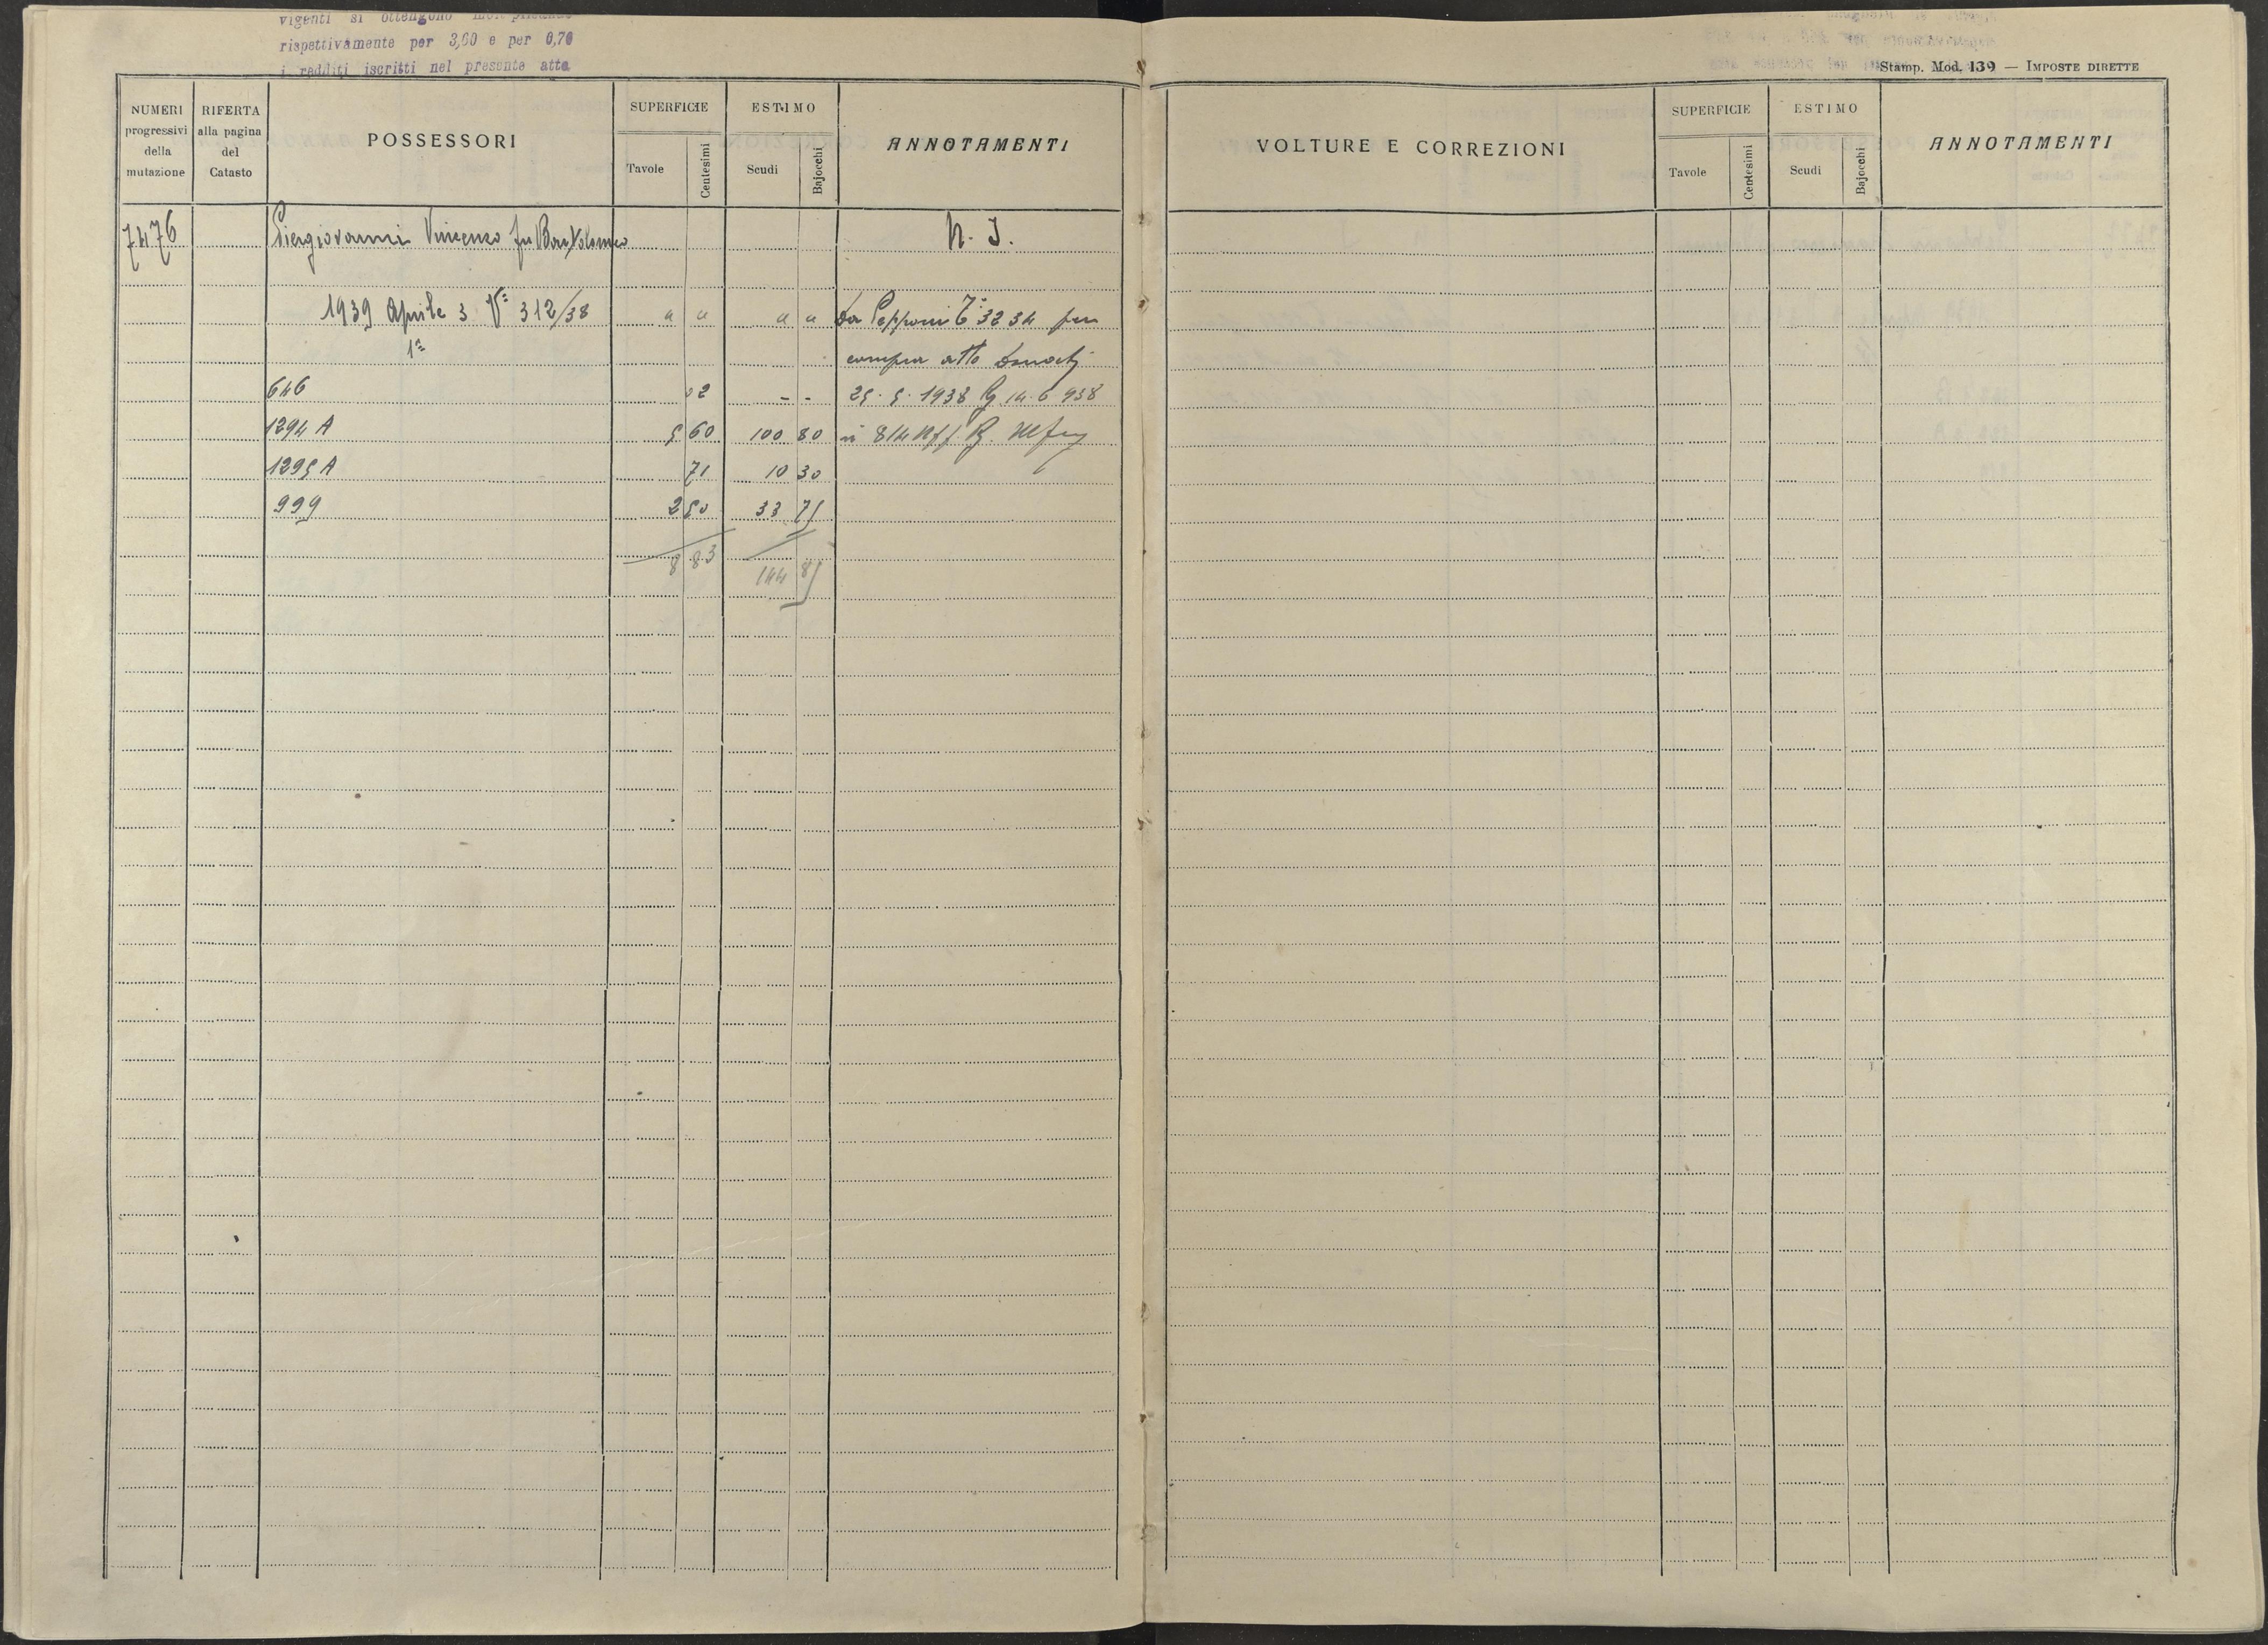 vigenti si ottengono
rispettivamente per 3,60 e per 0,70
i redditi iscritti nel presente atto
Stamp. Mod. 139 — IMPOSTE DIRETTE
NUMERI progressivi della mutazione
RIFERTA alla pagina del Catasto
POSSESSORI
SUPERFICIE
Tavole
Centesimi
ESTIMO
Scudi
Bajocchi
ANNOTAMENTI
VOLTURE E CORREZIONI
SUPERFICIE
Tavole
Centesimi
ESTIMO
Scudi
Bajocchi
ANNOTAMENTI
7476 Piergiovanni Vincenzo fu Bartolomeo N. I.
1939 Aprile 3 Va 312/38 " " " " Da Pepponi 3234 per
1a compra atto Donati
646 02 - - 25.5.1938 14.6.938
1294 A 5 60 100 80
1295 A 71 10 30
999 2 50 33 75
8 83 144 85